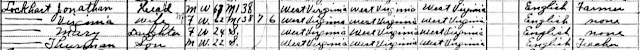 Lockhart Jonathan Head M W 67 M 38 West Virginia West Virginia West Virginia English Farmer
Virginia Wife F W 62 M 38 7 6 West Virginia West Virginia West Virginia English none
Mary Daughter F W 24 S West Virginia West Virginia West Virginia English none
Thurman Son M W 22 S West Virginia West Virginia West Virginia English Teacher